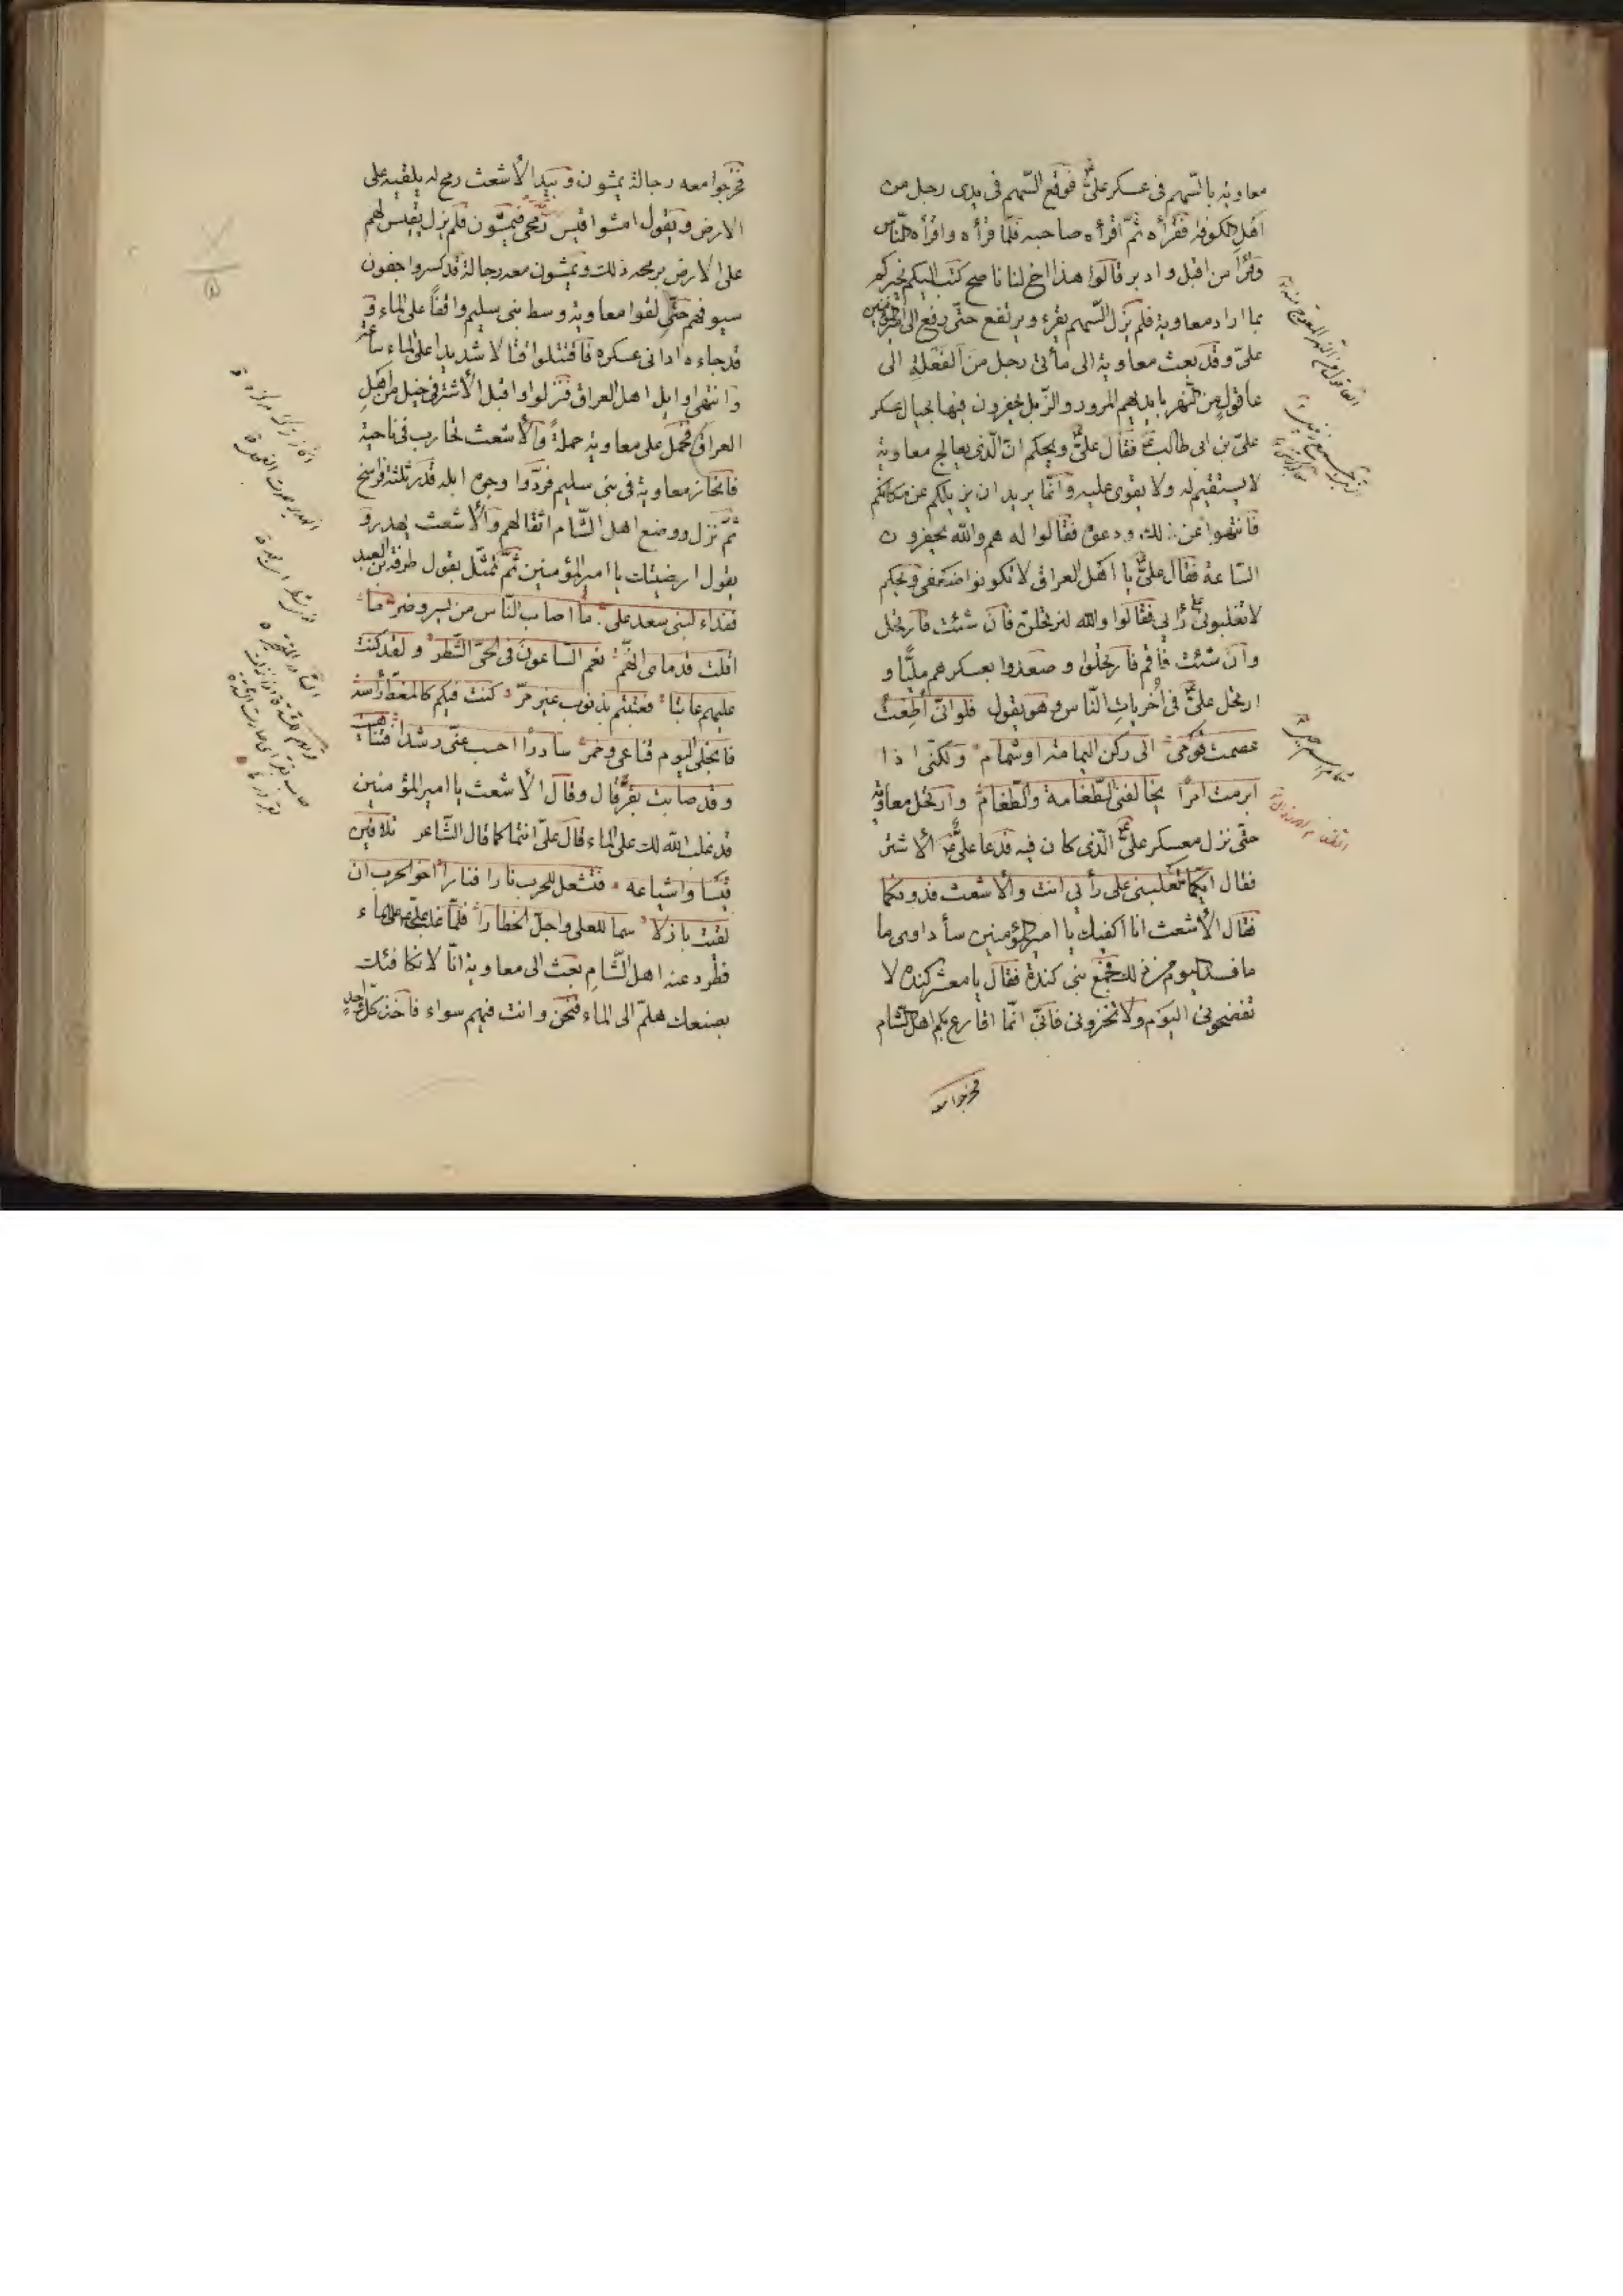 معاوية بالسّهم فى عسكر علىّ فوقع السّهم فى يدى رجل من
اهل الكوفة فقرأه ثمّ اقرأه صاحبه فلمّا قرأه واقرأه النّاس
وقرأ من اقبل وادبر قالوا هذا اخ لنا ناصح كتب اليكم يخبركم
بما اراد معاوية فلم يزل السّهم يقرء ويرتفع حتّى رفع الى امير المؤمنين
علىّ وقد بعث معاوية الى مأتى رجل من الفعلة الى
عاقول من النّهر بايديهم المرور والزّبل يحفرون فيها بحيال عسكر
علىّ بن ابى طالب فقال علىّ ويحكم انّ الّذى يعالج معاوية
لا يستقيم له ولا يقوى عليه وانّما يريد ان يزيلكم عن مكانكم
فانتهوا عن ذلك ودعوه فقالوا له هم والله يحفرون
السّاعة فقال علىّ يا اهل العراق لا تكونوا ضعفى ويحكم
لا تغلبونى على رأيى فقالوا والله لنرتحلنّ فان شئت فارتحل
وان شئت فاقم فارتحلوا وصعدوا بعسكرهم مليّا و
ارتحل علىّ فى اخريات النّاس وهو يقول فلو انّى اطعت
عصمت قومى الى ركن اليمامة او شمام ولكنّى اذا
ابرمت امرا يخالفنى الطّغامة والطّغام وارتحل معاوية
حتّى نزل معسكر علىّ الّذى كان فيه فدعا علىّ الاشتر
فقال ايّكما تغلبنى على رأيى انت والاشعث فدونكما
فقال الاشعث انا اكفيك يا امير المؤمنين سأداوى ما
ما فسد اليوم من ذلك فجمع بنى كندة فقال يا معشر كندة لا
تفضحونى اليوم ولا تخزونى فانّى انّما اقارع بكم اهل الشّام
فخرجوا معه
فخرجوا معه رجالة يمشون وبيد الاشعث رمح له يلقيه على
الارض ويقول امشوا قيس رمحى فيمشون فلم يزل يقيس لهم
على الارض برمحه ذلك ويمشون معه رجالة قد كسروا جفون
سيوفهم حتّى لقوا معاوية وسط بنى سليم واقفاً على الماء و
قد جاءه ادانى عسكره فاقتتلوا قتالا شديدا على الماء ساعة
وانتهى اوايل اهل العراق فنزلوا واقبل الاشتر فى خيل من اهل
العراق فحمل على معاوية حملةً والاشعث تحارب فى ناحية
فانحاز معاوية فى بنى سليم فردّوا وجوه ابله قدر ثلثة فراسخ
ثمّ نزل ووضع اهل الشّام اثقالهم والاشعث يهدر و
يقول ارضيتك يا امير المؤمنين ثمّ تمثّل بقول طرفة بن العبد
ففداء لبنى سعد على ما اصاب النّاس من يسر وضر ما
اقلت قدماى انّهم نعم السّاعون فى الحىّ الشّطر ولقد كنت
عليهم عاتبا فعتبتم بذنوب غير مرّ كنت فيكم كالمغطّى رأسه
فانجلى اليوم قناعى وخمر سادرا احسب غيّى رشدا فتناهيت
وقد صابت بقرّ قال وقال الاشعث يا امير المؤمنين
قد غلب الله لك على الماء قال علىّ انتما كما قال الشّاعر تلاقين
قيسا واشياعه فتشعل للحرب نارا فنارا اخو الحرب ان
لقيت بازلا سما للعلى واجلّ الخطارا فلمّا غلب علىّ على الماء
فطرد عنه اهل الشّام بعث الى معاوية انّا لا نكافئك
بصنعك هلمّ الى الماء فنحن وانت فيهم سواء فاخذ كلّ واحد